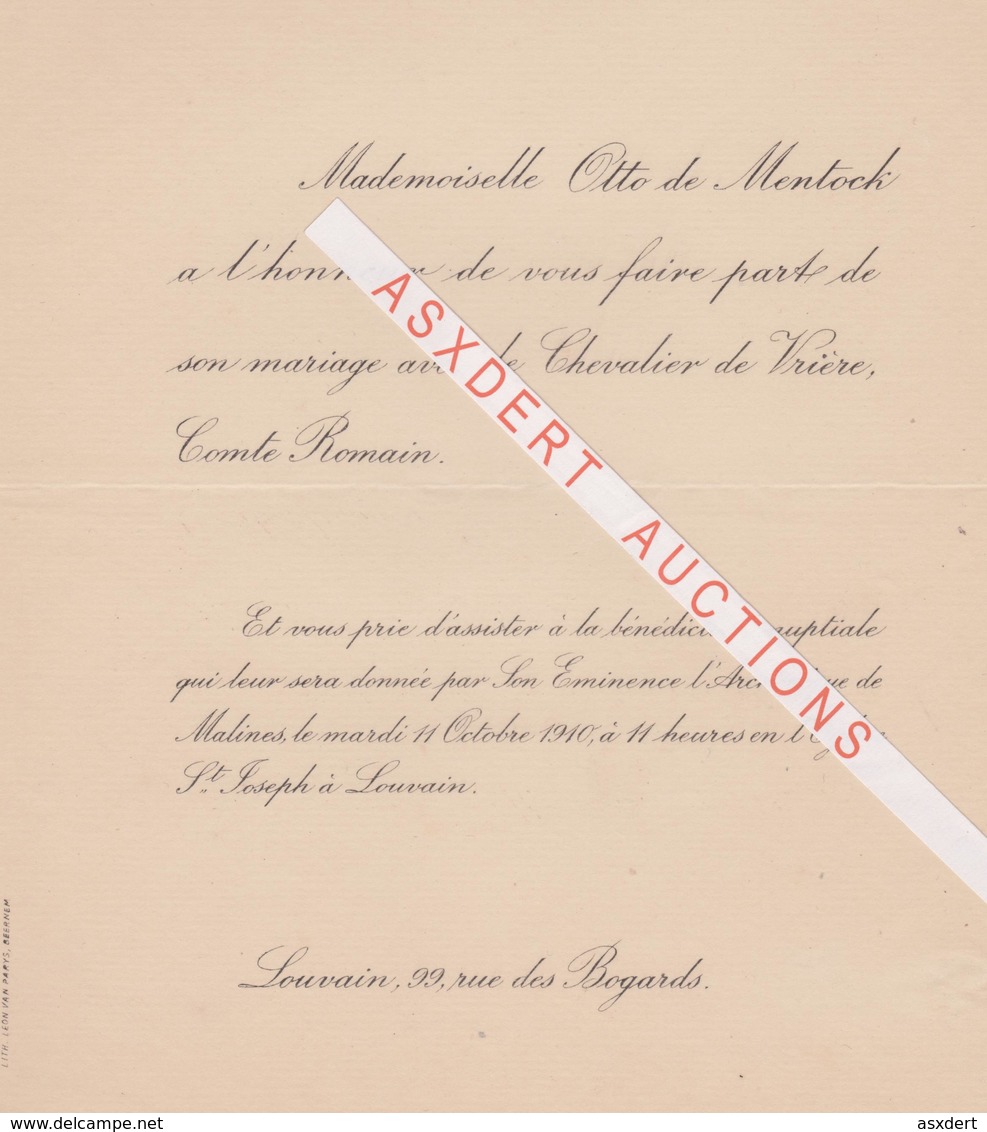 Mademoiselle Otto de Mentock
a l'honneur de vous faire part de
son mariage avec le Chevalier de Vrière,
Comte Romain.
Et vous prie d'assister à la bénédiction nuptiale
qui leur sera donnée par Son Eminence l'Archevêque de
Malines, le mardi 11 Octobre 1910, à 11 heures en l'Eglise
St Joseph à Louvain.
Louvain, 99, rue des Bogards.
LITH. LÉON VAN PARYS, BEERNEM
ASXDERT AUCTIONS
delcampe.net
asxdert